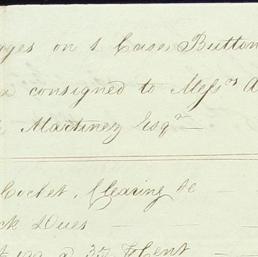 ges on 1 Cases Button
a consigned to Messrs A
Martinez Esqr —
Cocket, Clearing &c —
ck Dues —
t on a 35 ⅌ Cent —